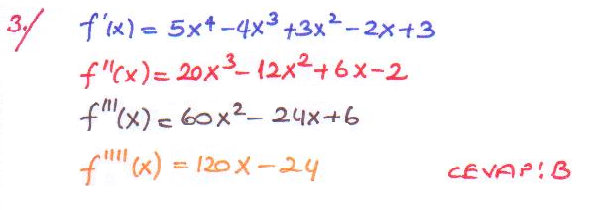 3./ f'(x) = 5x⁴ - 4x³ + 3x² - 2x + 3
f''(x) = 20x³ - 12x² + 6x - 2
f'''(x) = 60x² - 24x + 6
f''''(x) = 120x - 24 CEVAP: B